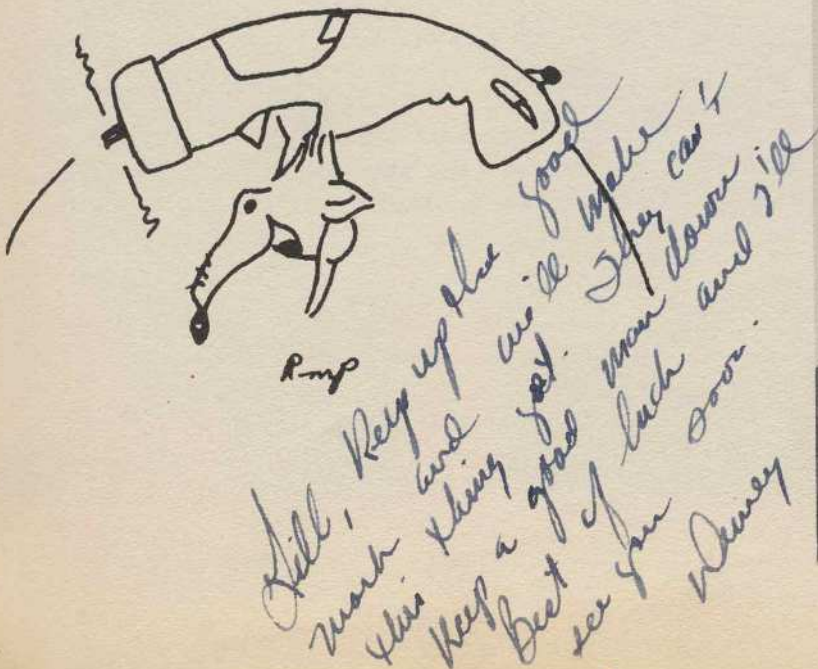 Rmp
Gill, Keep up the good
work and we'll make
this thing yet. They can't
keep a good man down
Best of luck and I'll
see you soon.